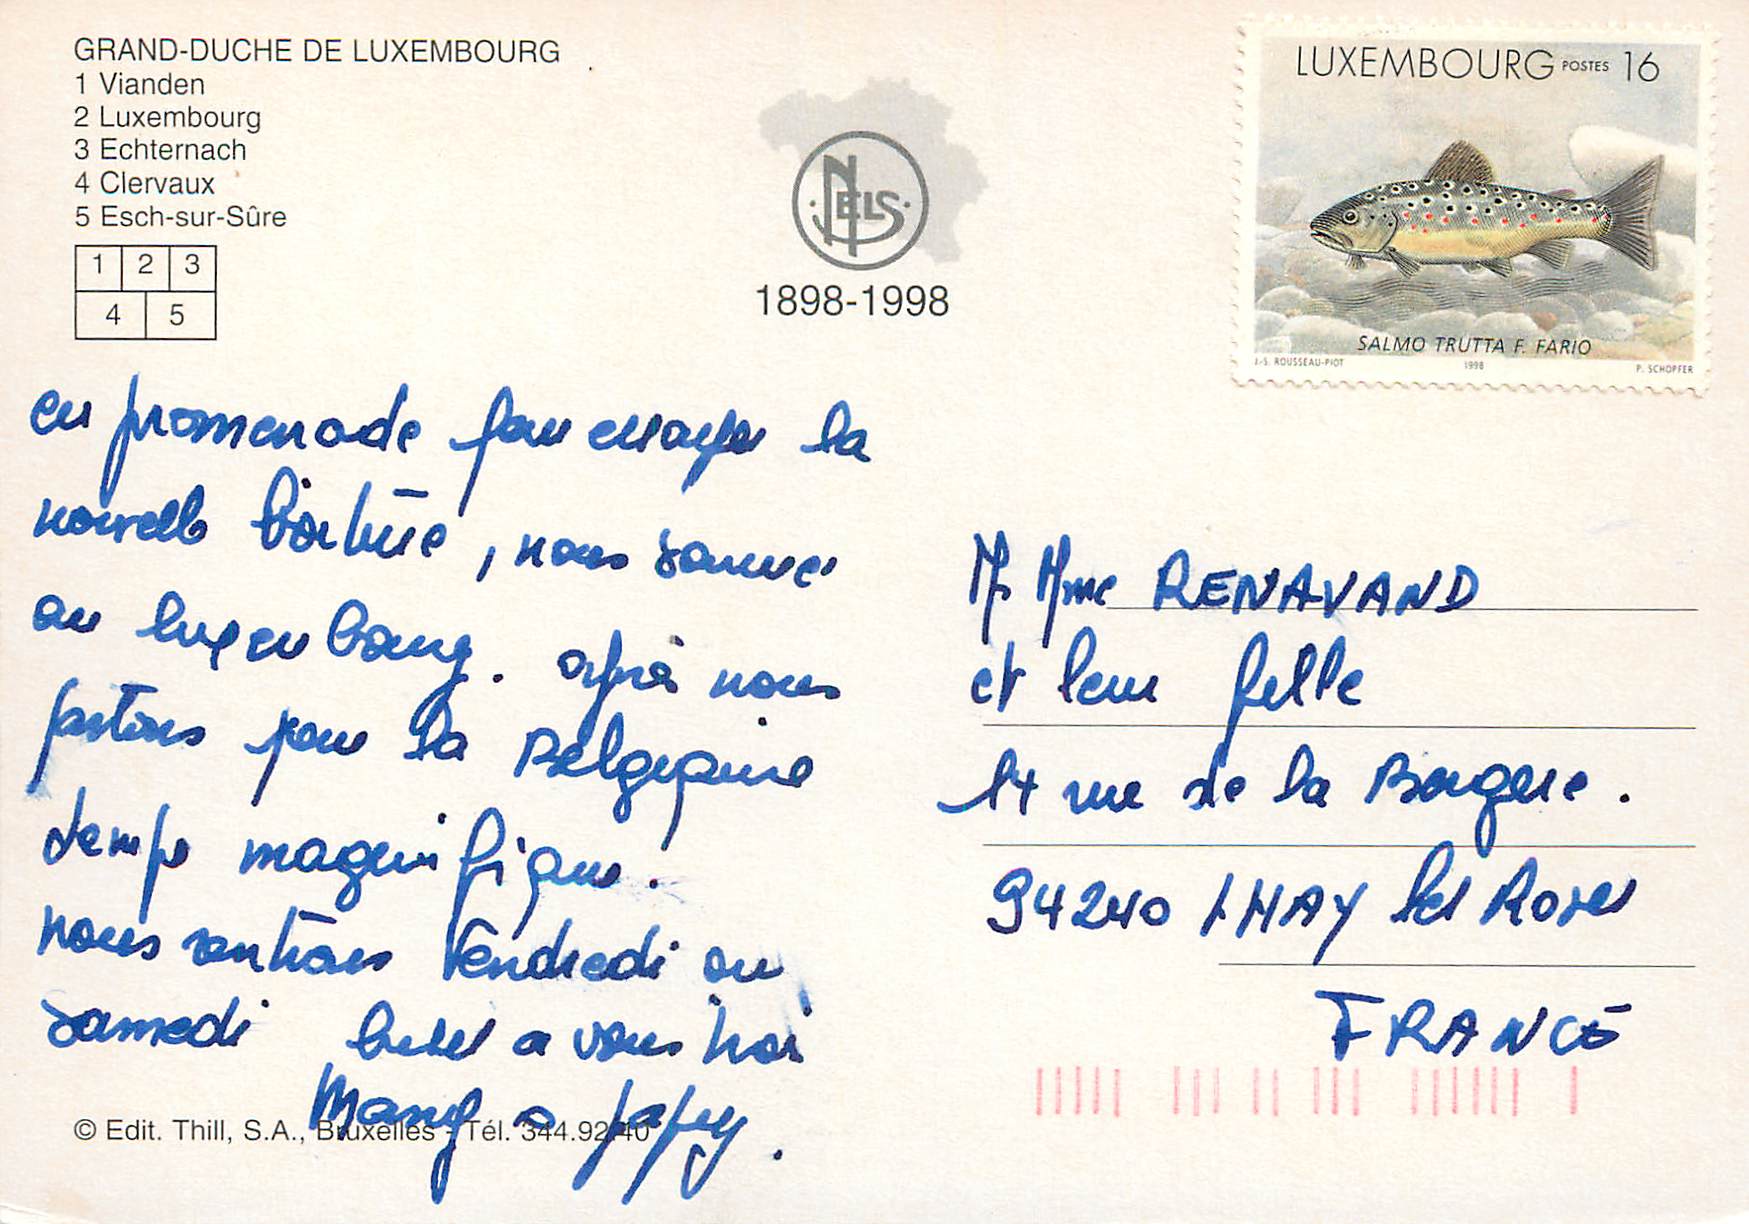 GRAND-DUCHE DE LUXEMBOURG
1 Vianden
2 Luxembourg
3 Echternach
4 Clervaux
5 Esch-sur-Sûre
1 2 3
4 5
NELS
1898-1998
LUXEMBOURG POSTES 16
SALMO TRUTTA F. FARIO
J.-S. ROUSSEAU-PIOT 1998 P. SCHOPFER
en promenade pour essayer la
nouvelle voiture, nous sommes
au luxembourg. après nous
partons pour la Belgique
temps magnifique.
nous rentrons Vendredi ou
samedi bises a vous trois
Mamy a papy.
© Edit. Thill, S.A., Bruxelles - Tél. 344.92.40
Mr Mme RENAVAND
et leur fille
14 rue de la Bergere.
94240 LHAY les Roses
FRANCE